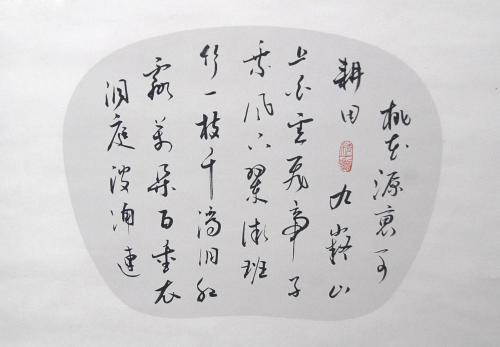 桃花源裏可
耕田 九嶷山
上白雲飛帝子
乘風下翠微班
竹一枝千滴泪紅
霞萬朵百重衣
洞庭波涌連